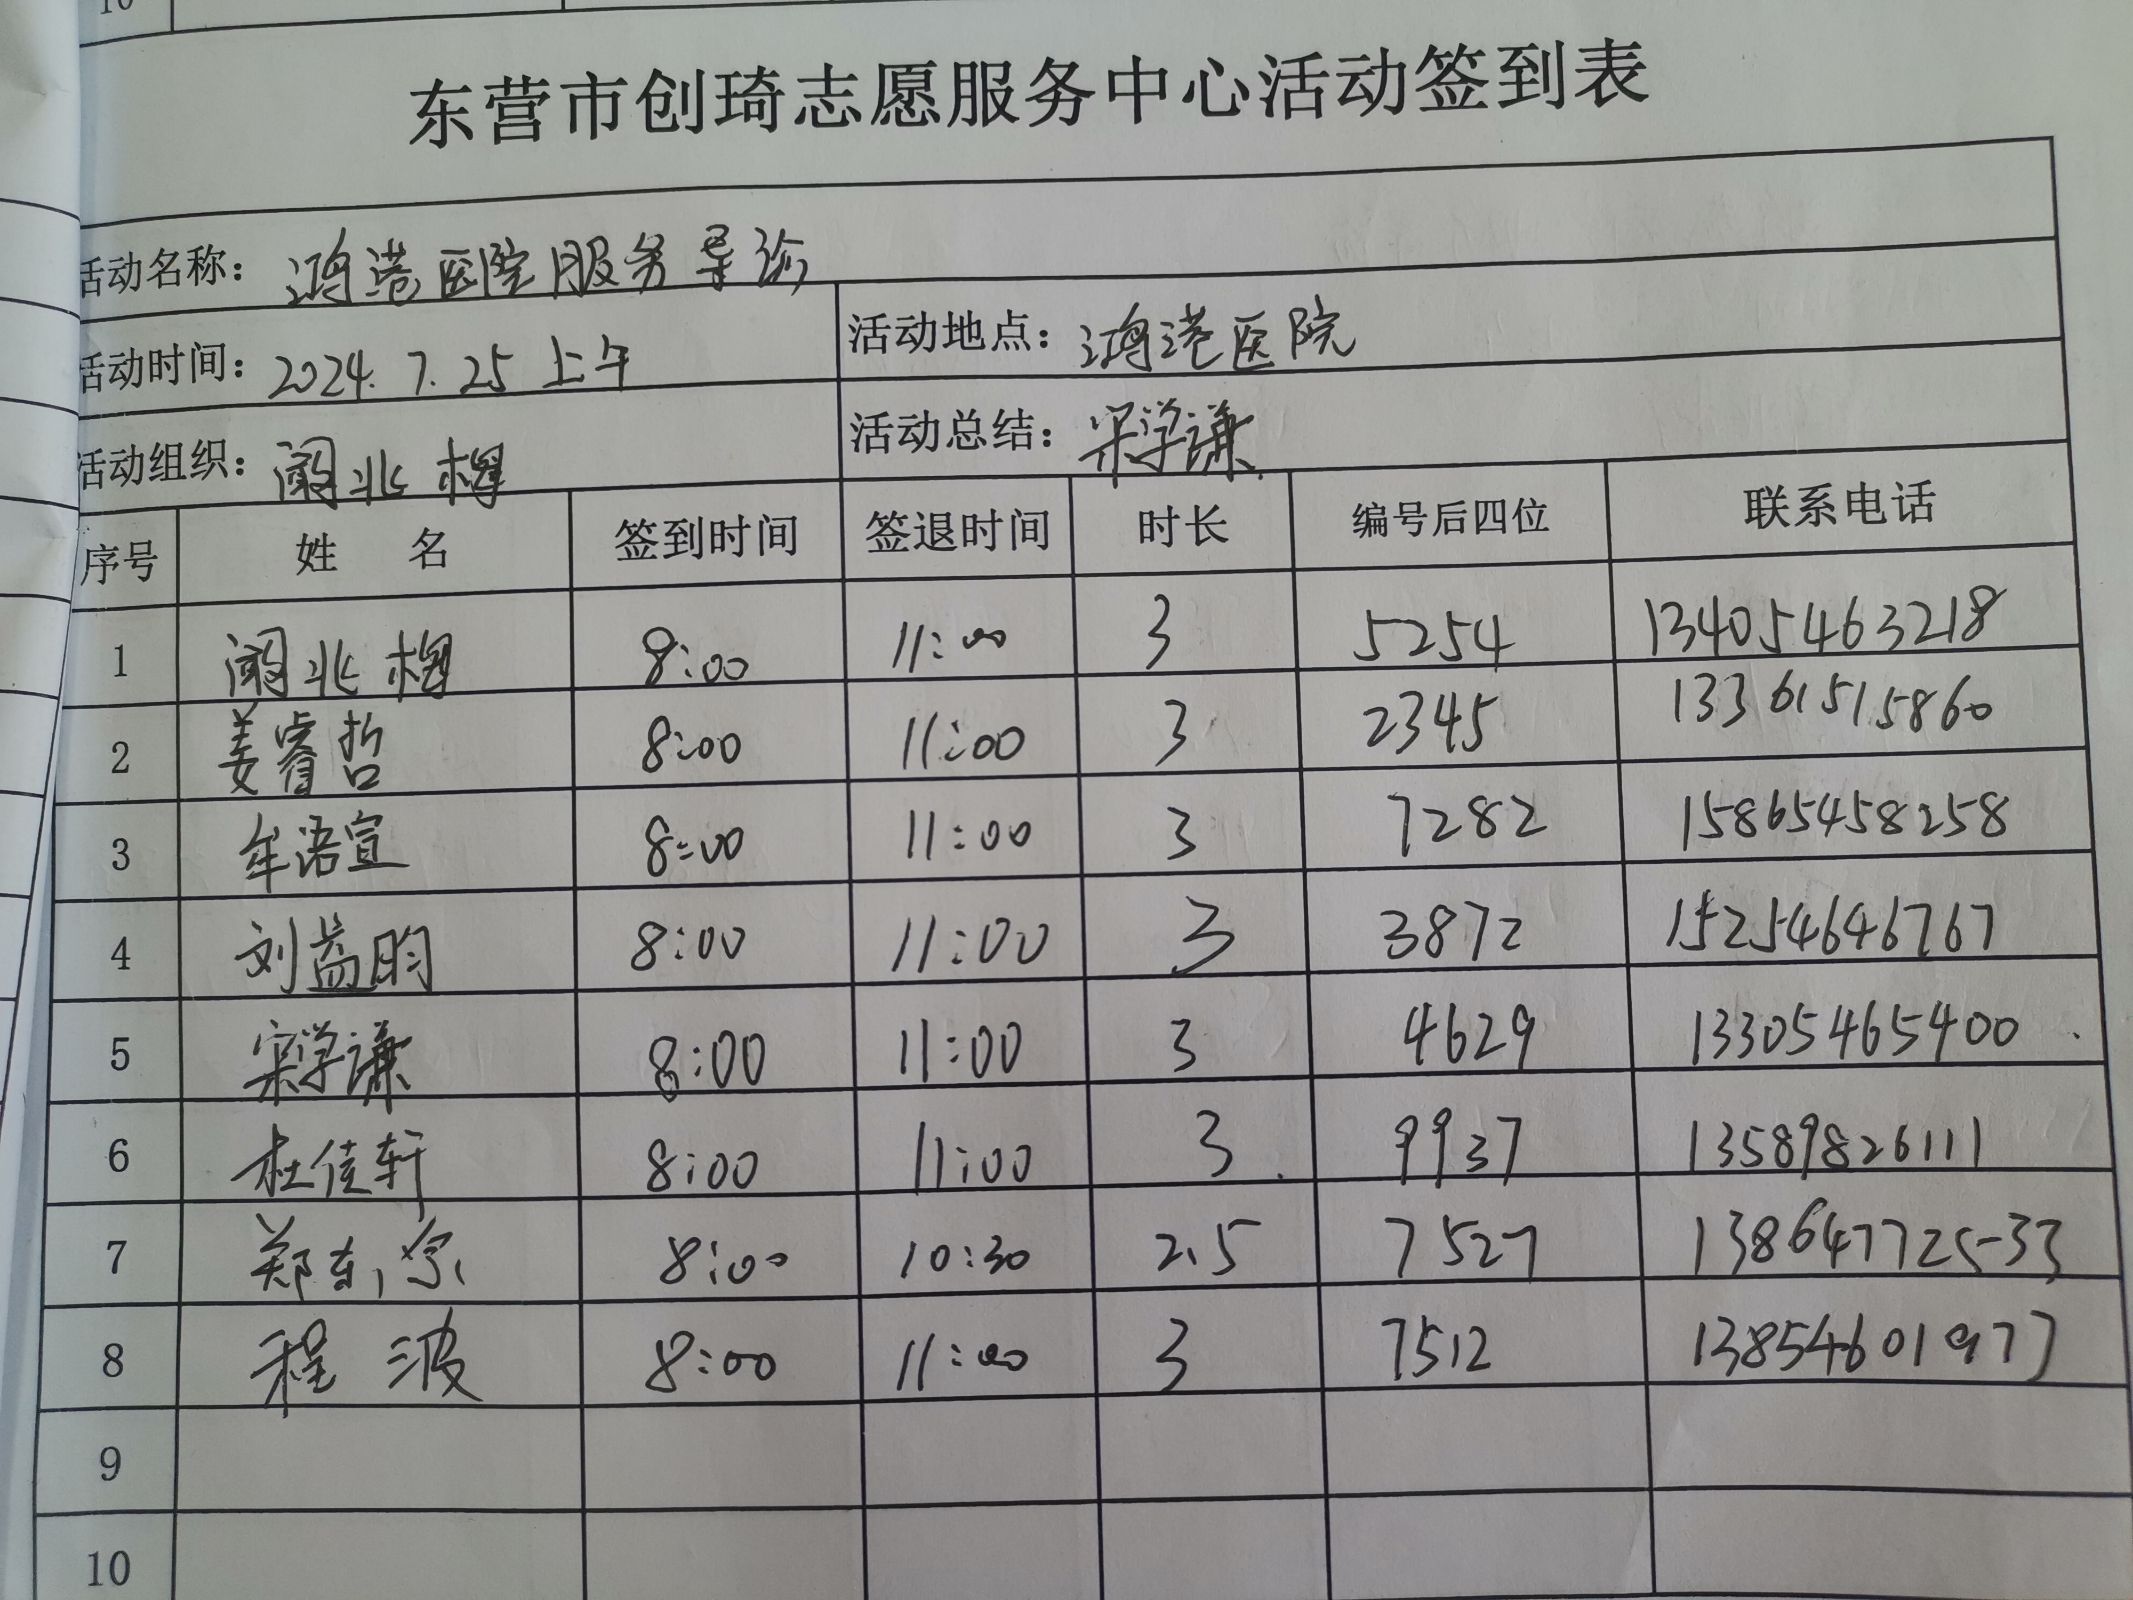 10
东营市创琦志愿服务中心活动签到表
活动名称：鸿港医院服务导诊
活动时间：2024.7.25 上午 活动地点：鸿港医院
活动组织： 活动总结：宋学谦
序号 姓 名 签到时间 签退时间 时长 编号后四位 联系电话
1 8:00 11:00 3 5254 13405463218
2 姜睿哲 8:00 11:00 3 2345 13361515860
3 牟语宣 8:00 11:00 3 7282 15865458258
4 刘益昀 8:00 11:00 3 3872 15254646767
5 宋学谦 8:00 11:00 3 4629 13305465400
6 杜佳轩 8:00 11:00 3 9937 13589826111
7 郑 8:00 10:30 2.5 7527 13864772533
8 程波 8:00 11:00 3 7512 13854601977
9
10